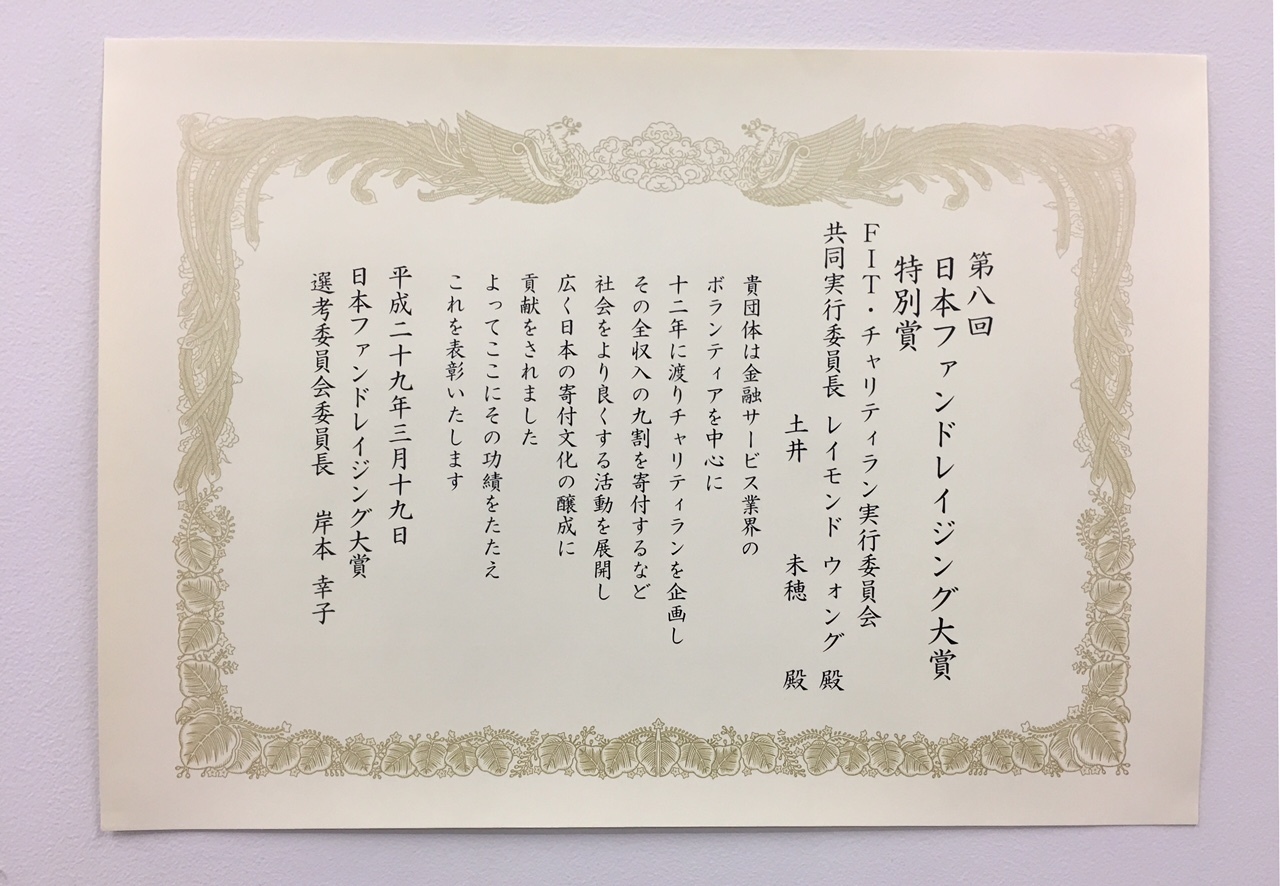 第八回
日本ファンドレイジング大賞
特別賞
FIT・チャリティラン実行委員会
共同実行委員長 レイモンド ウォング 殿
土井 未穂 殿
貴団体は金融サービス業界の
ボランティアを中心に
十二年に渡りチャリティランを企画し
その全収入の九割を寄付するなど
社会をより良くする活動を展開し
広く日本の寄付文化の醸成に
貢献をされました
よってここにその功績をたたえ
これを表彰いたします
平成二十九年三月十九日
日本ファンドレイジング大賞
選考委員会委員長 岸本 幸子